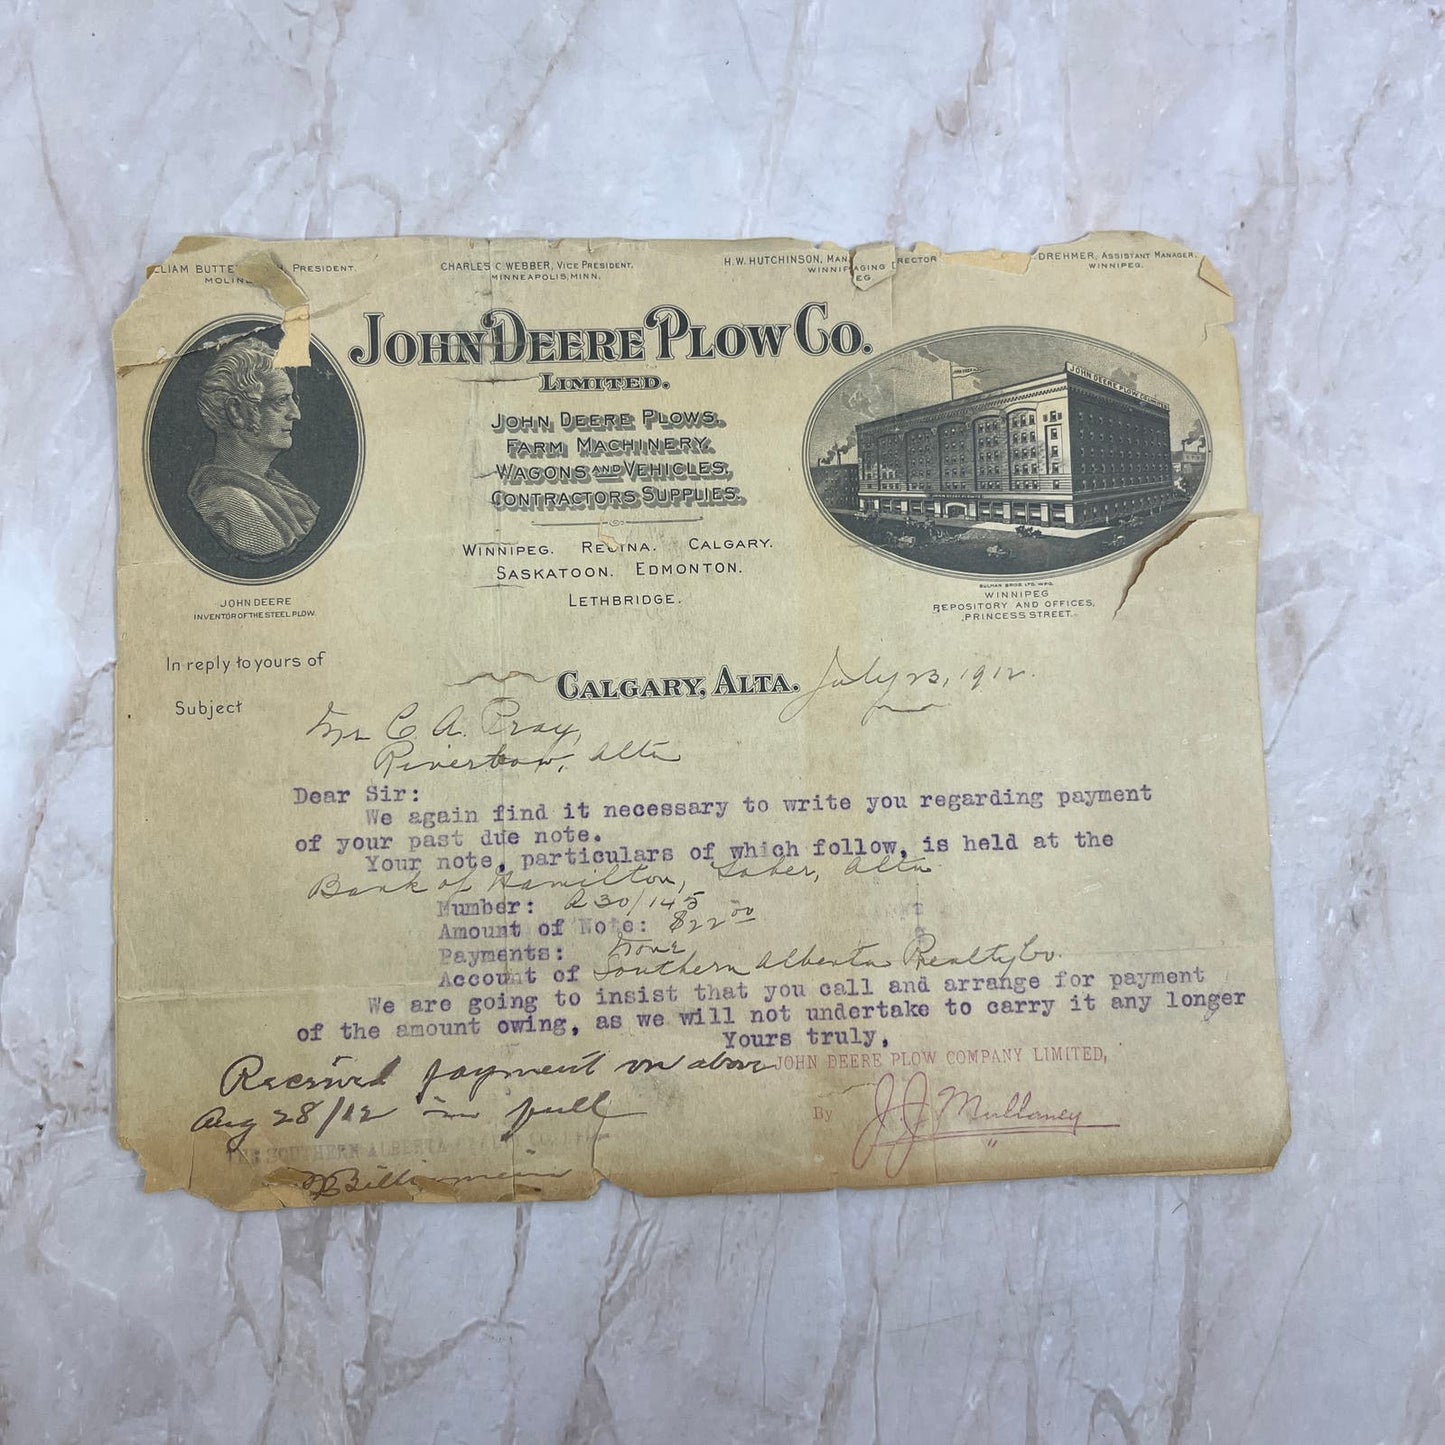 LLIAM BUTTE H, PRESIDENT.
MOLINE
CHARLES C. WEBBER, VICE PRESIDENT,
MINNEAPOLIS, MINN.
H.W. HUTCHINSON, MANAGING DIRECTOR
WINNIPEG
DREHMER, ASSISTANT MANAGER,
WINNIPEG.
JOHN DEERE PLOW CO.
LIMITED.
JOHN DEERE PLOWS,
FARM MACHINERY,
WAGONS AND VEHICLES,
CONTRACTORS SUPPLIES.
JOHN DEERE PLOW COMPANY
WINNIPEG. REGINA. CALGARY.
SASKATOON. EDMONTON.
LETHBRIDGE.
JOHN DEERE
INVENTOR OF THE STEEL PLOW.
BULMAN BROS. LTD. WPG.
WINNIPEG
REPOSITORY AND OFFICES,
PRINCESS STREET.
In reply to yours of
Subject
CALGARY, ALTA. July 23, 1912.
Mr C. A. Pray,
Riverbow, Alta
Dear Sir:
We again find it necessary to write you regarding payment
of your past due note.
Your note, particulars of which follow, is held at the
Bank of Hamilton, Taber, Alta
Number: A30/145
Amount of Note: $22.00
Payments: None
Account of Southern Alberta Realty Co.
We are going to insist that you call and arrange for payment
of the amount owing, as we will not undertake to carry it any longer
Yours truly,
JOHN DEERE PLOW COMPANY LIMITED,
By J. J. Mullaney
Received payment on above
Aug 28/12 in full
THE SOUTHERN ALBERTA